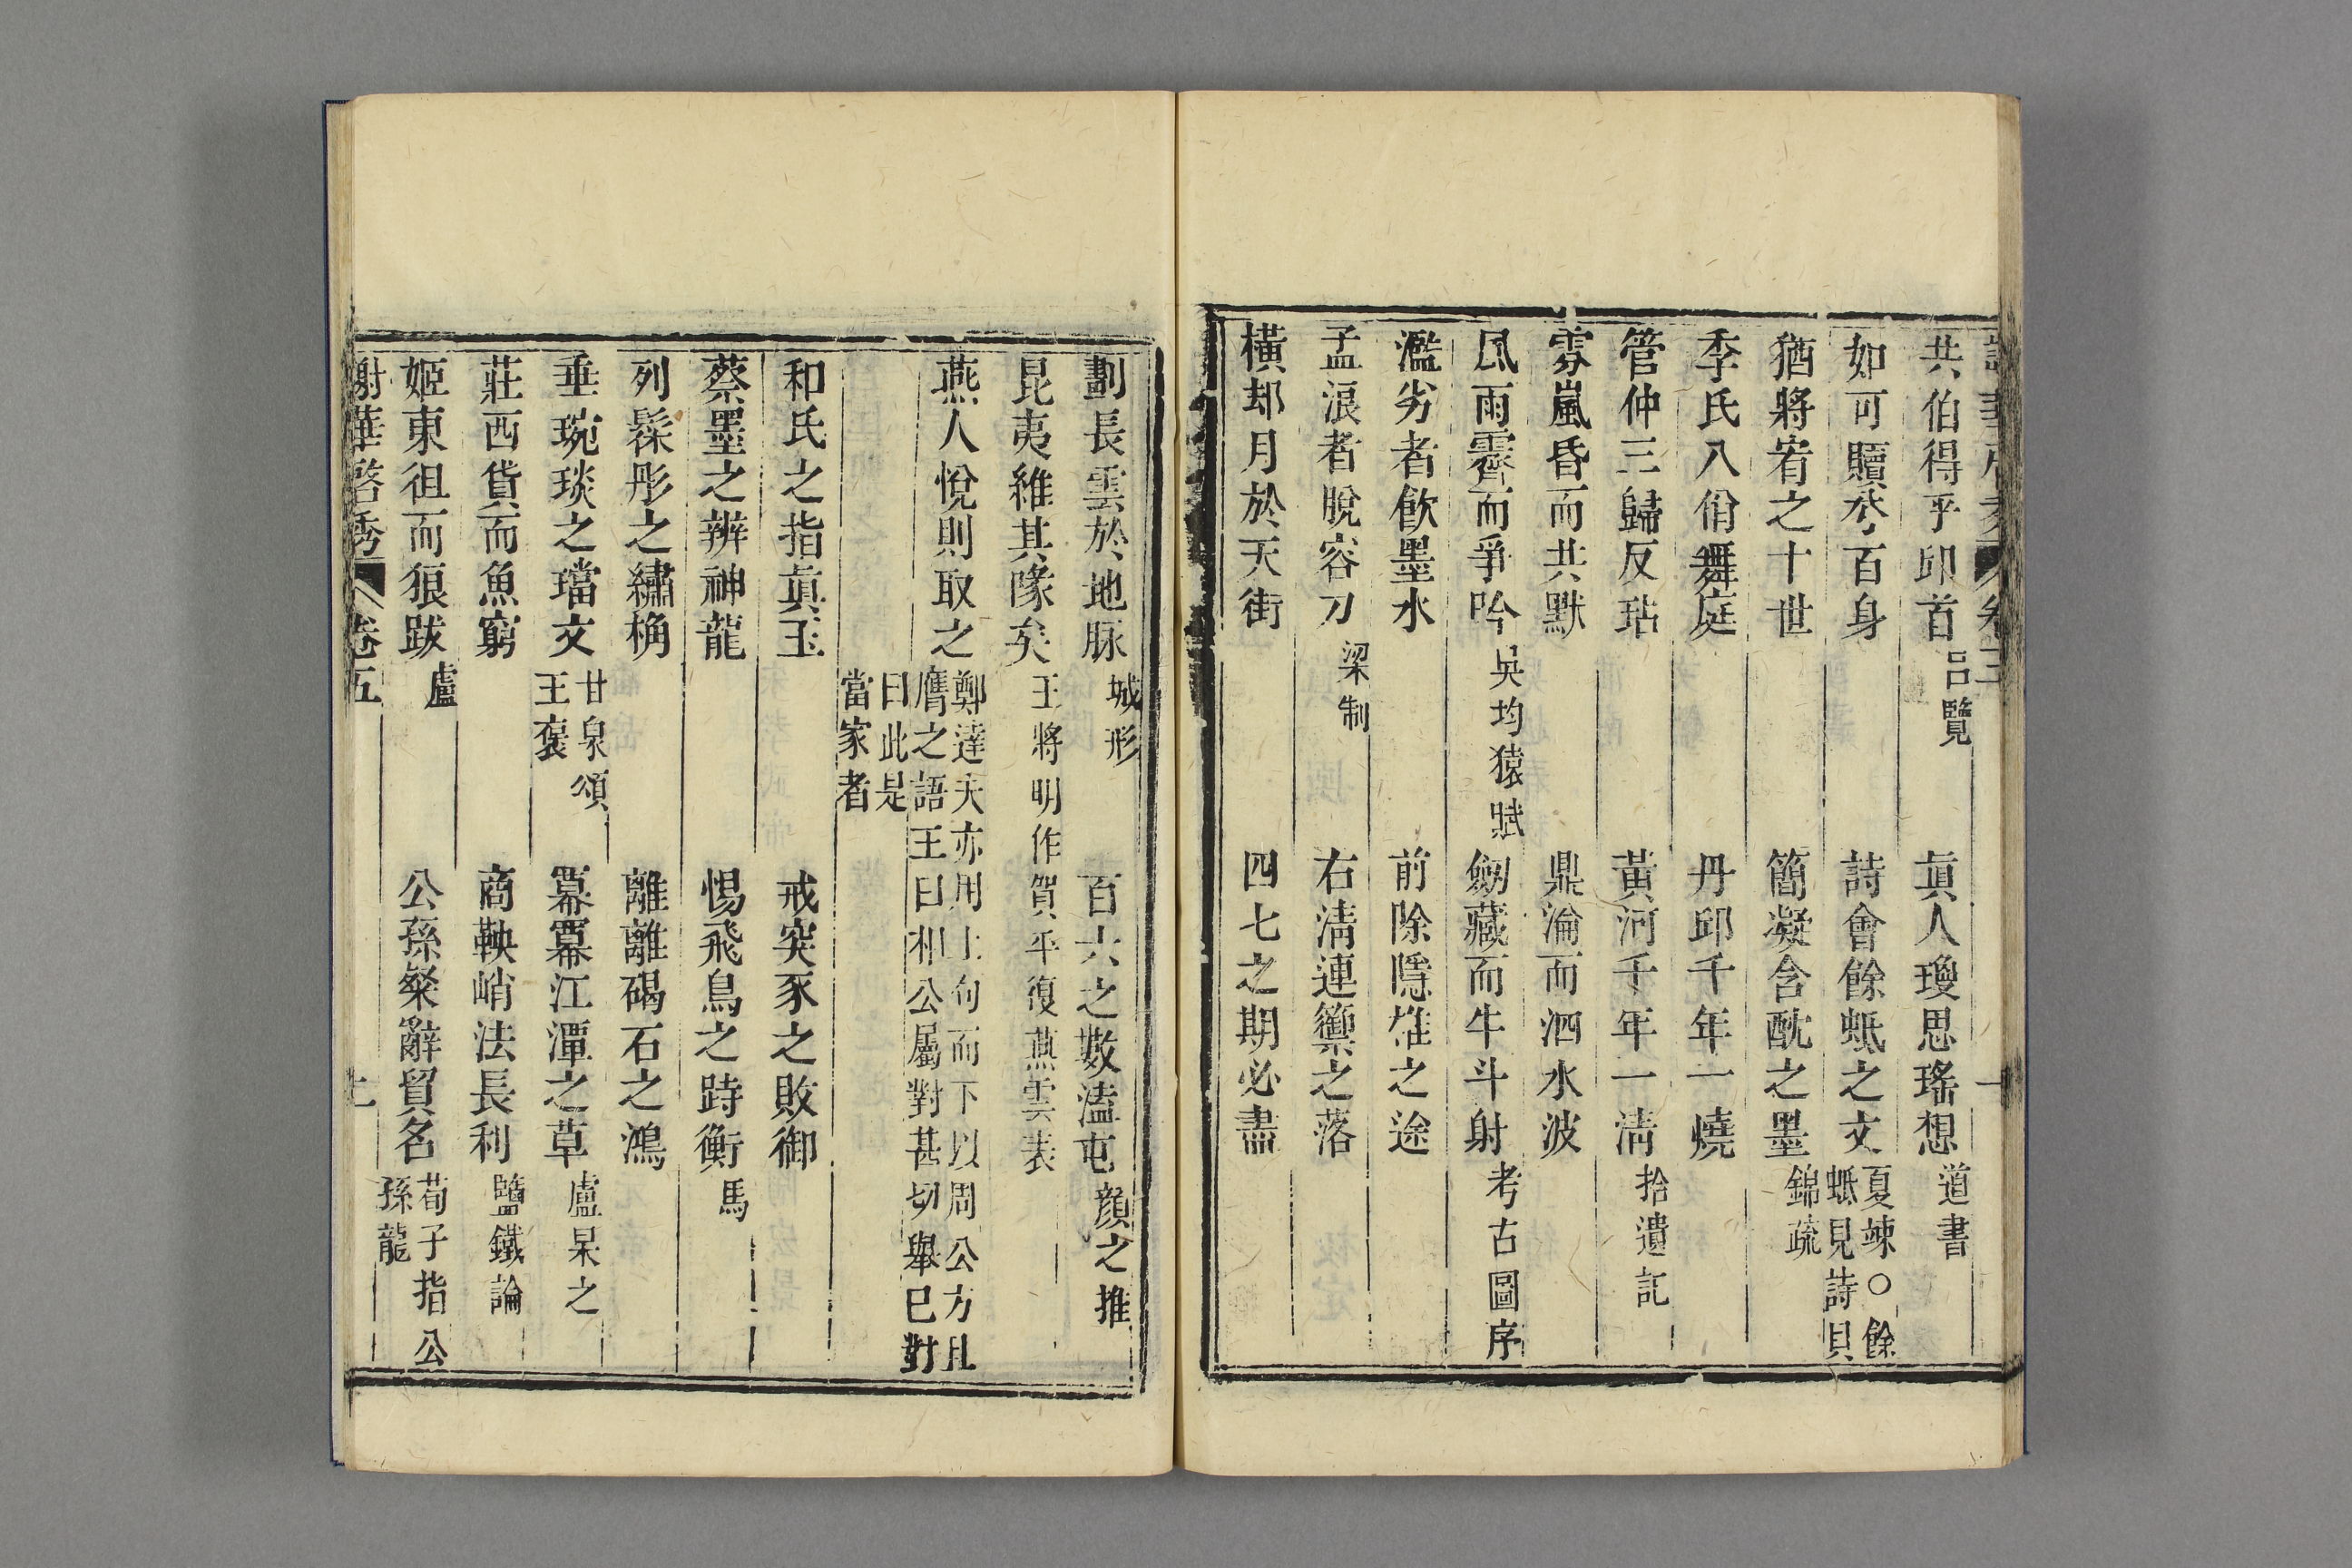 共伯得乎邱首 呂覽 眞人瓊思瑤想 道書
如可贖兮百身 詩會餘蚳之文 夏竦○餘蚳見詩貝錦疏
猶將宥之十世 簡凝含酖之墨
季氏八佾舞庭 丹邱千年一燒
管仲三歸反玷 黃河千年一淸 拾遺記
雰嵐昏而共默 鼎淪而泗水波
風雨霽而爭吟 吳均猿賦 劒藏而牛斗射 考古圖序
濫劣者飮墨水 前除隱雉之途
孟浪者脫容刀 梁制 右淸連籞之落
橫却月於天街 四七之期必盡
劃長雲於地脉 城形 百六之數溘屯 顏之推
昆夷維其隊矣 王將明作賀平復燕雲表
燕人悅則取之 鄭達夫亦用上句而下以周公方且膺之語王曰相公屬對甚切舉已對曰此是當家者
和氏之指眞玉 戒突豕之敗御
蔡墨之辨神龍 惕飛鳥之跱衡 馬
列髹彤之繡桷 離離碣石之鴻
垂琬琰之璫文 甘泉頌王褒 羃羃江潭之草 盧杲之
莊西貨而魚窮 商鞅峭法長利 鹽鐵論
姬東徂而狼跋 盧 公孫粲辭貿名 荀子指公孫龍
謝華啓秀 卷五